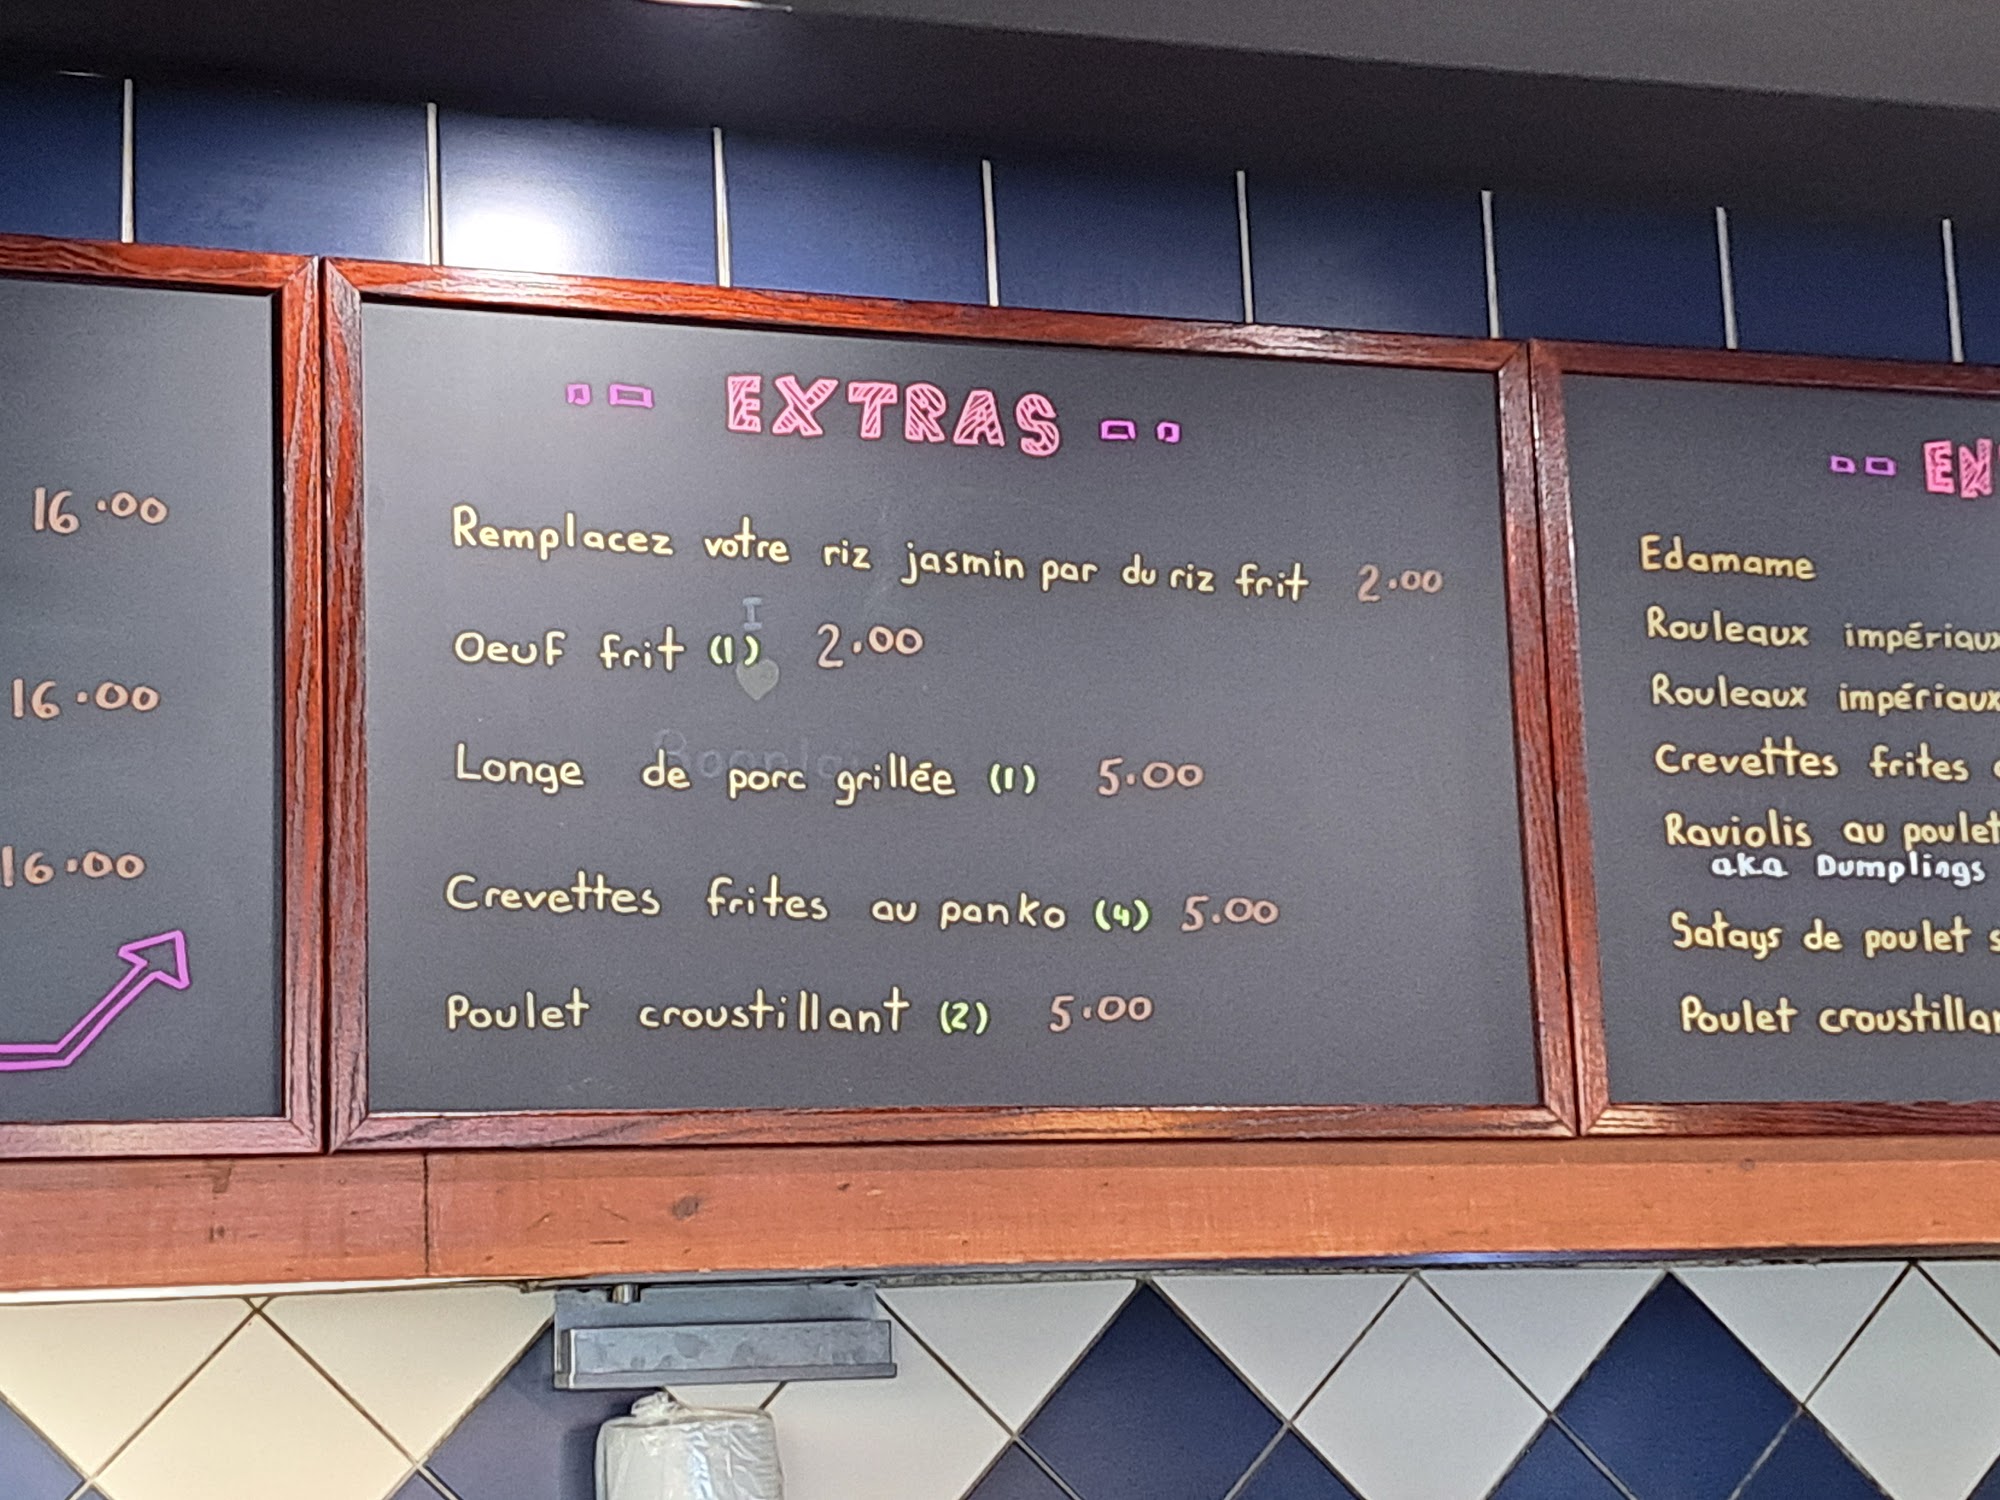 16.00
16.00
16.00
EXTRAS
Remplacez votre riz jasmin par du riz frit 2.00
Oeuf frit (1) 2.00
Longe de porc grillée (1) 5.00
Crevettes frites au panko (4) 5.00
Poulet croustillant (2) 5.00
I
EN
Edamame
Rouleaux impériaux
Rouleaux impériaux
Crevettes frites
Raviolis au poulet
aka Dumplings
Satays de poulet s
Poulet croustillan